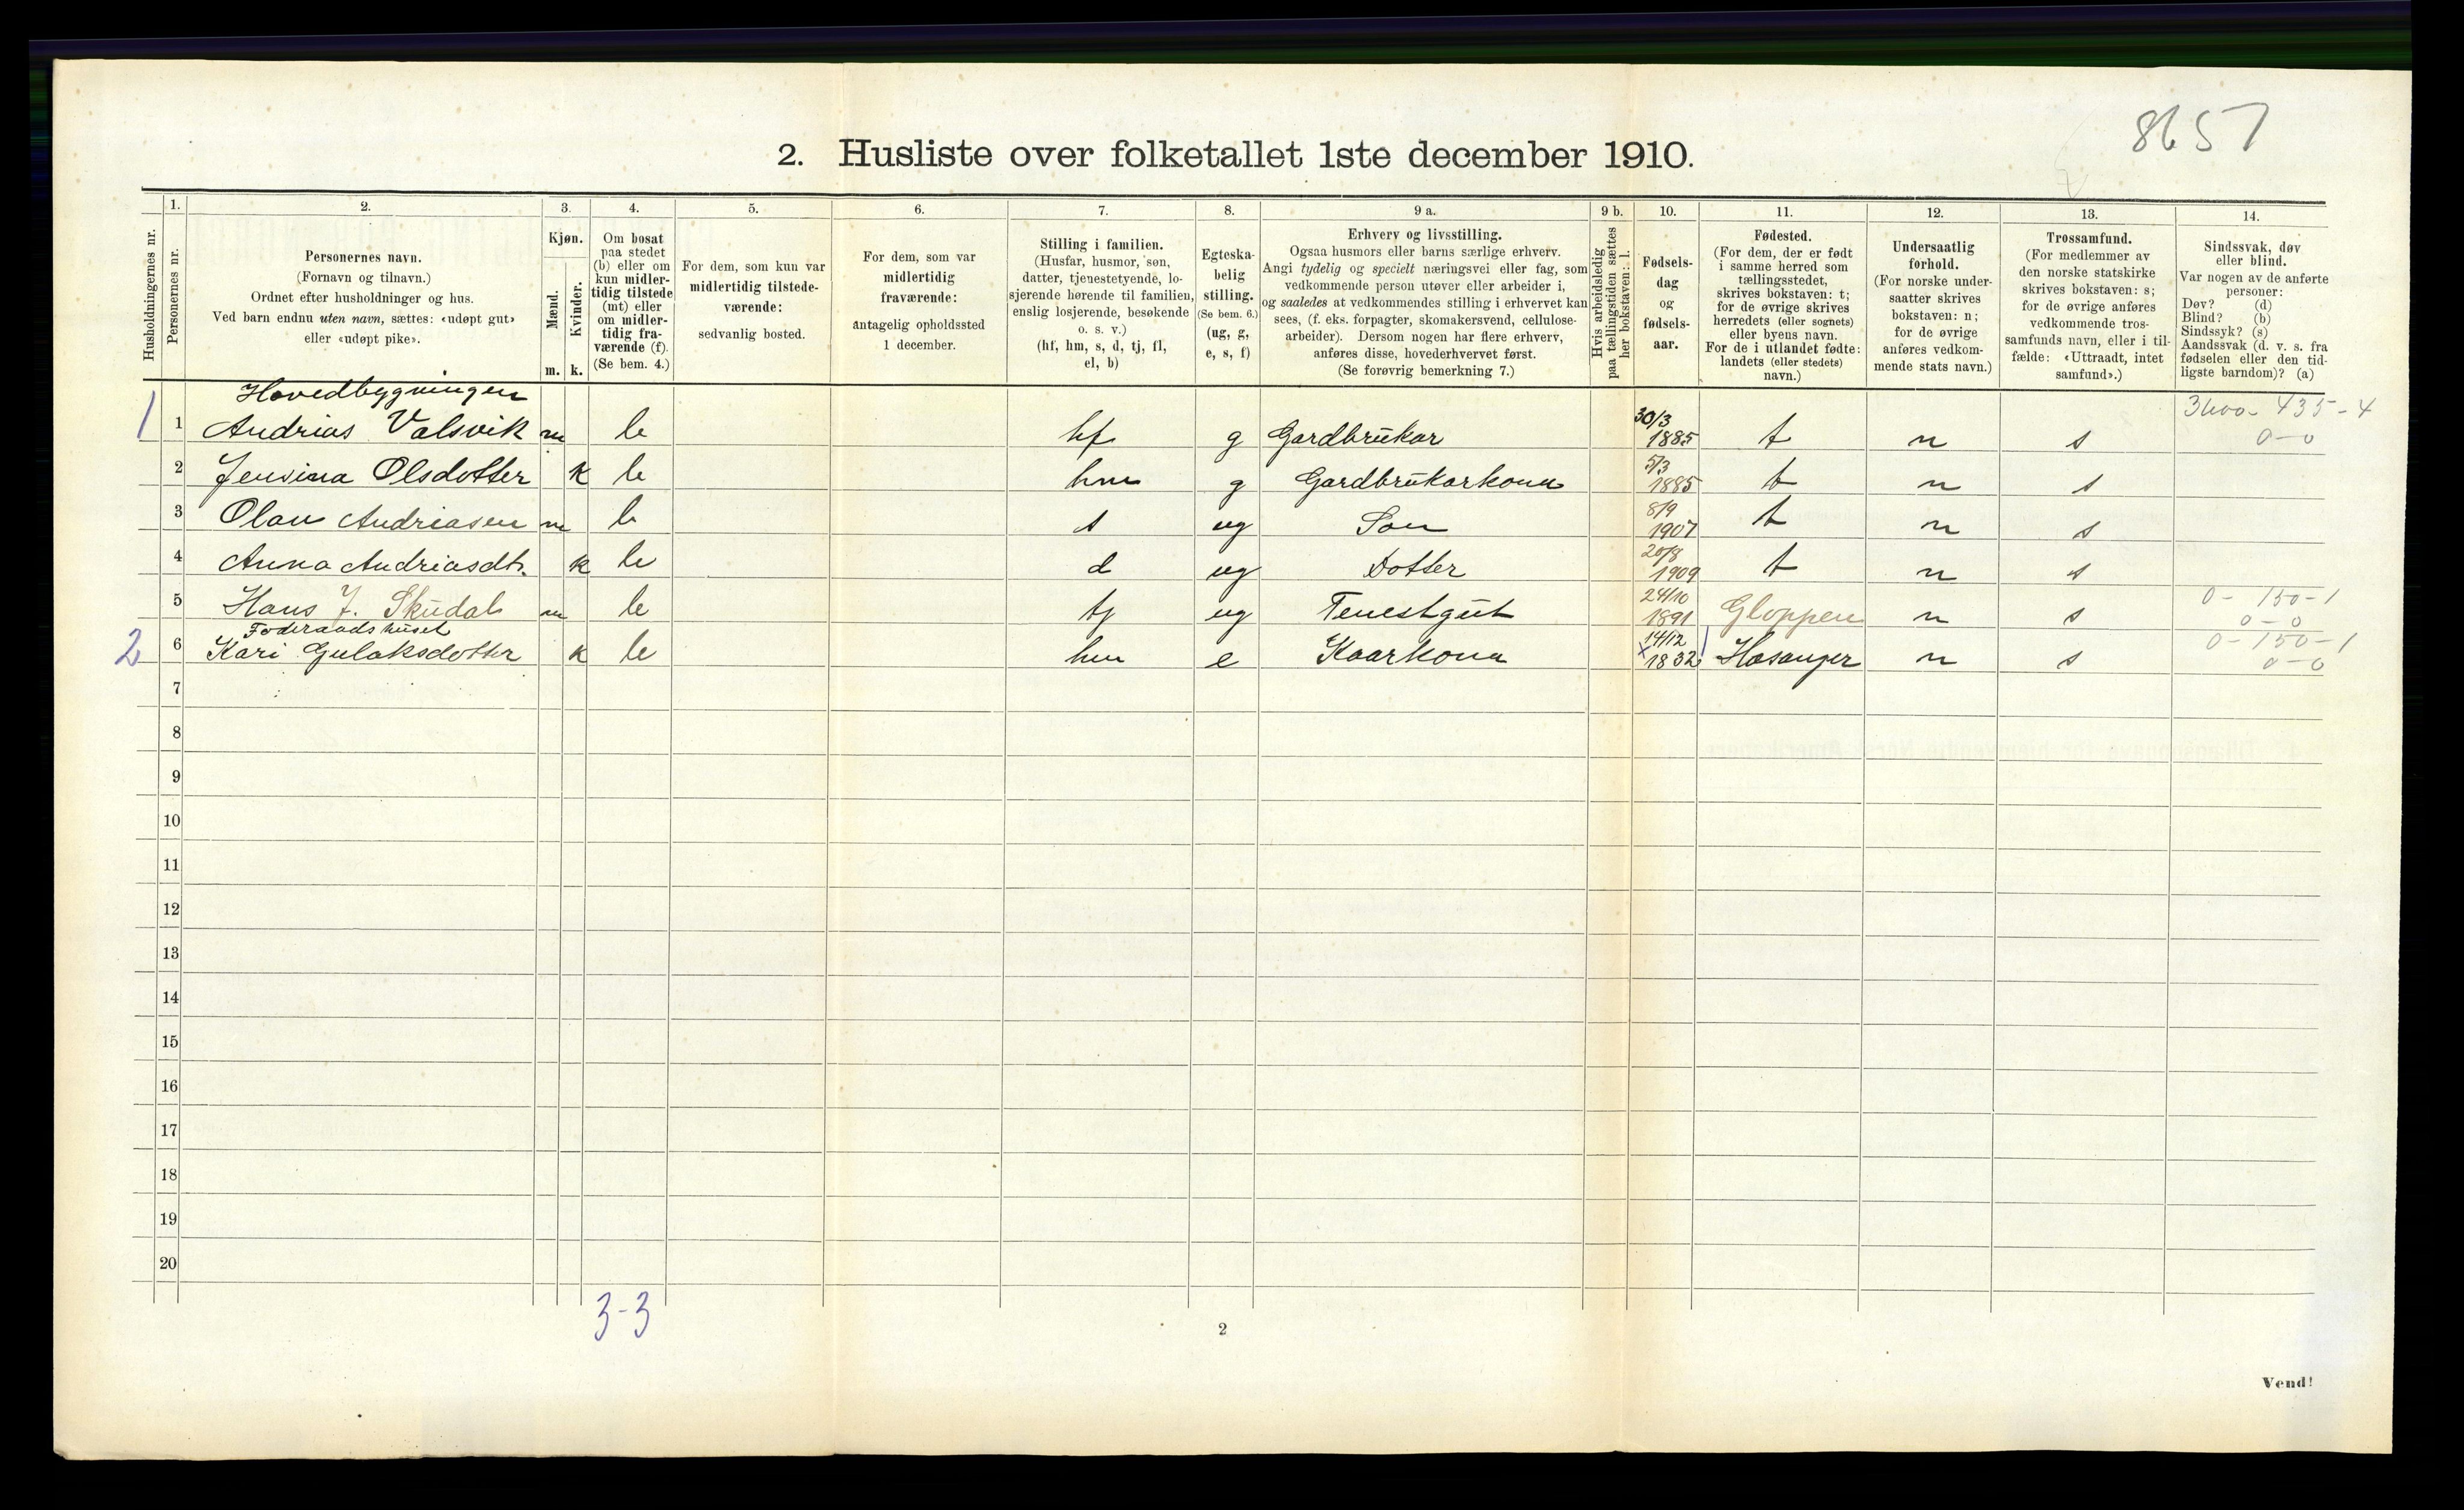 8657
2. Husliste over folketallet 1ste december 1910.
Husholdningernes nr.
1.
Personernes nr.
2.
Personernes navn.
(Fornavn og tilnavn.)
Ordnet efter husholdninger og hus.
Ved barn endnu uten navn, sættes: «udøpt gut»
eller «udøpt pike».
3.
Kjøn.
Mænd.
Kvinder.
m. k.
4.
Om bosat
paa stedet
(b) eller om
kun midler-
tidig tilstede
(mt) eller
om midler-
tidig fra-
værende (f).
(Se bem. 4.)
5.
For dem, som kun var
midlertidig tilstede-
værende:
sedvanlig bosted.
6.
For dem, som var
midlertidig
fraværende:
antagelig opholdssted
1 december.
7.
Stilling i familien.
(Husfar, husmor, søn,
datter, tjenestetyende, lo-
sjerende hørende til familien,
enslig losjerende, besøkende
o. s. v.)
(hf, hm, s, d, tj, fl,
el, b)
8.
Egteska-
belig
stilling.
(Se bem. 6.)
(ug, g,
e, s, f)
9 a.
Erhverv og livsstilling.
Ogsaa husmors eller barns særlige erhverv.
Angi tydelig og specielt næringsvei eller fag, som
vedkommende person utøver eller arbeider i,
og saaledes at vedkommendes stilling i erhvervet kan
sees, (f. eks. forpagter, skomakersvend, cellulose-
arbeider). Dersom nogen har flere erhverv,
anføres disse, hovederhvervet først.
(Se forøvrig bemerkning 7.)
9 b.
Hvis arbeidsledig
paa tællingstiden sættes
her bokstaven: l.
10.
Fødsels-
dag
og
fødsels-
aar.
11.
Fødested.
(For dem, der er født
i samme herred som
tællingsstedet,
skrives bokstaven: t;
for de øvrige skrives
herredets (eller sognets)
eller byens navn.
For de i utlandet fødte:
landets (eller stedets)
navn.)
12.
Undersaatlig
forhold.
(For norske under-
saatter skrives
bokstaven: n;
for de øvrige
anføres vedkom-
mende stats navn.)
13.
Trossamfund.
(For medlemmer av
den norske statskirke
skrives bokstaven: s;
for de øvrige anføres
vedkommende tros-
samfunds navn, eller i til-
fælde: «Uttraadt, intet
samfund».)
14.
Sindssvak, døv
eller blind.
Var nogen av de anførte
personer:
Døv? (d)
Blind? (b)
Sindssyk? (s)
Aandssvak (d. v. s. fra
fødselen eller den tid-
ligste barndom)? (a)
Hovedbygningen
1 1 Andrias Valsvik m b hf g Gardbrukar 30/3 1885 t n s 3400 - 435 - 4 0-0
2 Jensina Olsdotter k b hm g Gardbrukarkona 5/3 1885 t n s
3 Olav Andriasen m b s ug Son 8/9 1907 t n s
4 Anna Andriasdtr. k b d ug Dotter 20/8 1909 t n s
5 Hans J. Skudal m b tj ug Tenestgut 24/10 1891 Gloppen n s 0 - 150 - 1 0-0
Føderaadshuset
2 6 Kari Gulaksdotter k b hm e Kaarkona 14/12 x 1832 Hosanger n s 0 - 150 - 1 0-0
7
8
9
10
11
12
13
14
15
16
17
18
19
20
3-3
2
Vend!